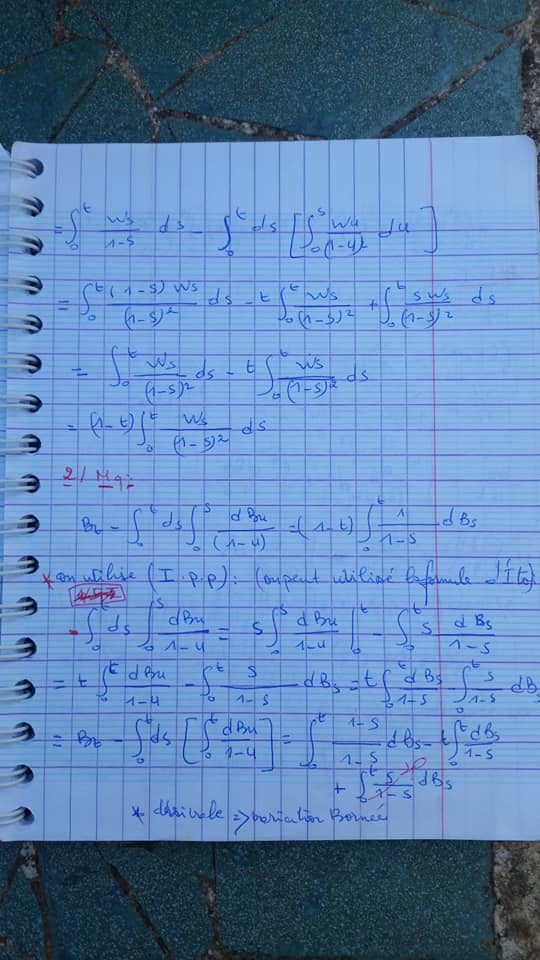 = ∫₀ᵗ Ws/(1-s) ds - ∫₀ᵗ ds [∫₀ˢ Wu/(1-u)² du]
= ∫₀ᵗ (1-s) Ws/(1-s)² ds - t ∫₀ᵗ Ws/(1-s)² + ∫₀ᵗ s Ws/(1-s)² ds
= ∫₀ᵗ Ws/(1-s)² ds - t ∫₀ᵗ Ws/(1-s)² ds
= (1-t) ∫₀ᵗ Ws/(1-s)² ds
2/ Mq:
Bt - ∫₀ᵗ ds ∫₀ˢ dBu/(1-u) = (1-t) ∫₀ᵗ 1/(1-s) dBs
* on utilise (I.p.p): (on peut utilisé la formule d'Ito)
- ∫₀ᵗ ds ∫₀ˢ dBu/(1-u) = s ∫₀ˢ dBu/(1-u) |₀ᵗ - ∫₀ᵗ s dBs/(1-s)
= t ∫₀ᵗ dBu/(1-u) - ∫₀ᵗ s/(1-s) dBs = t ∫₀ᵗ dBs/(1-s) - ∫₀ᵗ s/(1-s) dBs
= Bt - ∫₀ᵗ ds [∫₀ᵗ dBu/(1-u)] = ∫₀ᵗ (1-s)/(1-s) dBs - t ∫₀ᵗ dBs/(1-s)
+ ∫₀ᵗ s/(1-s) dBs
* dérivable => variation Bornée